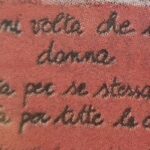 ni volta che
donna
per se stessa
per tutte le